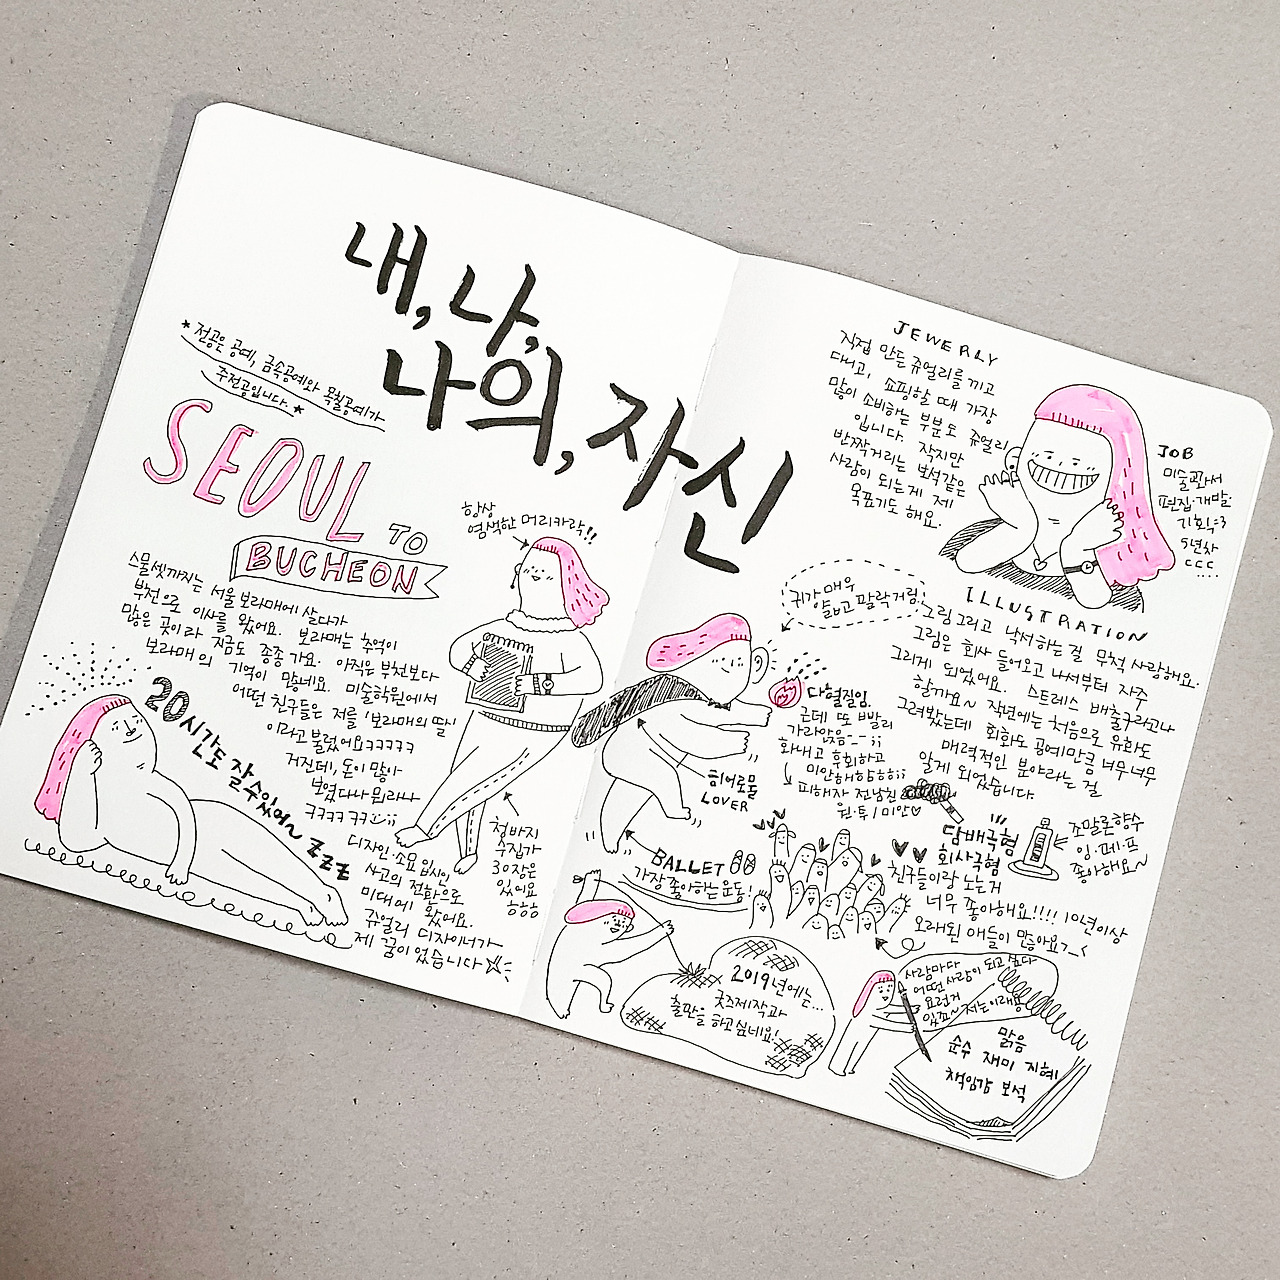 내, 나,
나의, 자신
* 전공은 공예, 금속공예와 목칠공예가
주전공입니다. *
SEOUL
TO
BUCHEON
항상
염색한 머리카락!!
스물셋까지는 서울 보라매에 살다가
부천으로 이사를 왔어요. 보라매는 추억이
많은 곳이라 지금도 종종 가요. 아직은 부천보다
보라매의 기억이 많네요. 미술학원에서
어떤 친구들은 저를 '보라매의 딸'식
이라고 불렀어요ㅋㅋㅋㅋㅋ
거진데, 돈이 많아
보였다나 뭐라나
ㅋㅋㅋㅋㅋㅋ
20시간도 잘 수 있어~ zzz
디자인·소묘 입시인
사고의 전환으로
미대에 왔어요.
쥬얼리 디자이너가
제 꿈이었습니다
청바지
수집가
30장은
있어요
ㅎㅎㅎ
JEWERLY
직접 만든 쥬얼리를 끼고
다니고, 쇼핑할 때 가장
많이 소비하는 부분도 쥬얼리
입니다. 작지만
반짝거리는 보석같은
사람이 되는게 제
목표기도 해요.
JOB
미술교과서
편집·개발·
기획
5년차
ㄷㄷㄷ
....
귀가 매우
넓고 팔락거림
ILLUSTRATION
그림 그리고 낙서하는걸 무척 사랑해요.
그림은 회사 들어오고 나서부터 자주
그리게 되었어요. 스트레스 배출구라고나
할까요~ 작년에는 처음으로 유화도
그려봤는데 회화도 공예만큼 너무너무
매력적인 분야라는 걸
알게 되었습니다.
다혈질임.
근데 또 빨리
가라앉음-_-;;
화내고 후회하고
미안해함ㅎㅎ;;
피해자 전남친
원·투 / 미안♡
히어로물
LOVER
BALLET
가장 좋아하는 운동!
담배극혐
회사극혐
조말론향수
잉·페·프
좋아해요~
친구들이랑 노는거
너무 좋아해요!!!! 10년이상
오래된 애들이 많아요>_<
2019년에는...
굿즈제작과
출판을 하고싶네요!
사람마다
어떤 사람이 되고 싶다
요런거
있죠~ 저는 이래용
맑음
순수 재미 지혜
책임감 보석